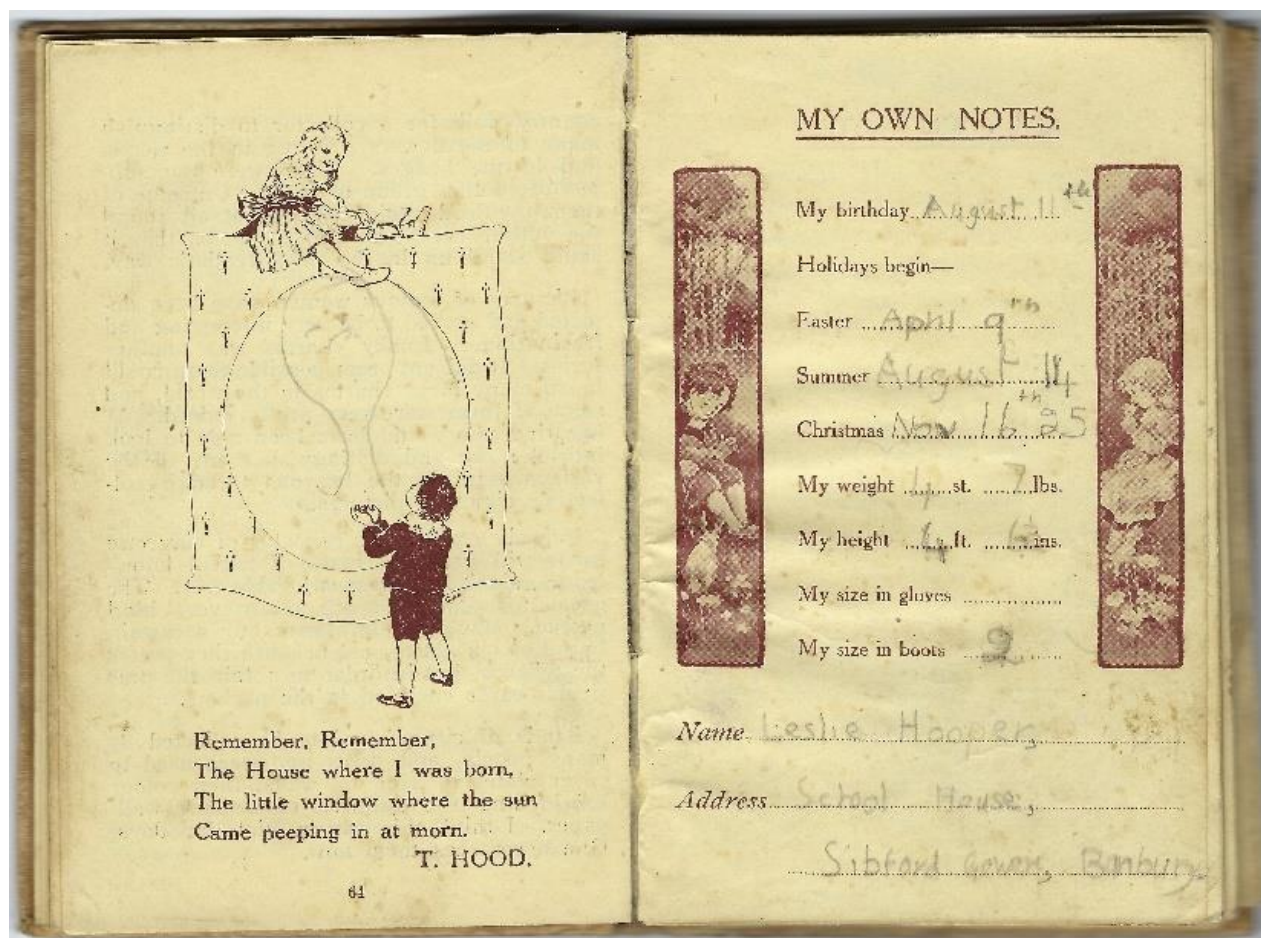 Remember, Remember,
The House where I was born,
The little window where the sun
Came peeping in at morn.
T. HOOD.
64
MY OWN NOTES.
My birthday August 11th
Holidays begin—
Easter April 9th
Summer August 14
Christmas Nov 16th 25
My weight 4 st. 7 lbs.
My height 4 ft. ins.
My size in gloves
My size in boots 2
Name Leslie Hooper,
Address School House,
Sibford Gower, Banbury